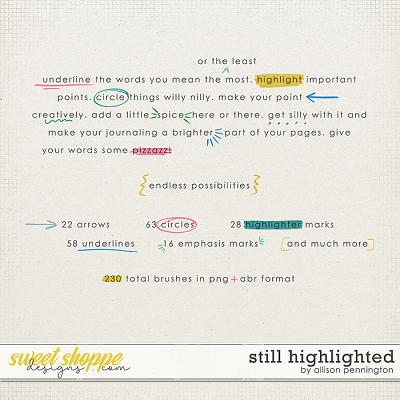 or the least
underline the words you mean the most. highlight important
points. circle things willy nilly. make your point
creatively. add a little spice here or there. get silly with it and
make your journaling a brighter part of your pages. give
your words some pizzazz!
{endless possibilities}
22 arrows 63 circles 28 highlighter marks
58 underlines 16 emphasis marks [and much more]
230 total brushes in png + abr format
sweet shoppe
designs.com
still highlighted
by allison pennington